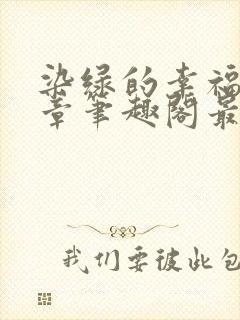 染绿的幸福
章笔趣阁最
我们要彼此包